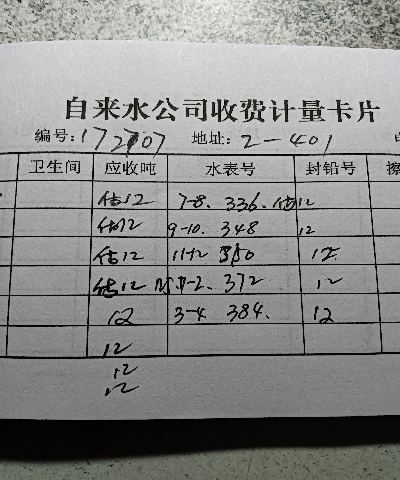 自来水公司收费计量卡片
编号:172707 地址:2-401
卫生间 应收吨 水表号 封铅号
估12 7-8. 336. 估12
估12 9-10. 348 12
估12 11-12 12
估12 1-2. 372 12
12 3-4 384. 12
12
12
12